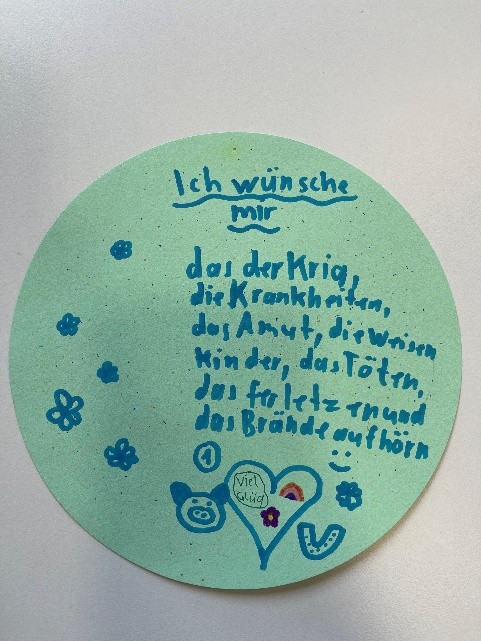 Ich wünsche
mir
das der Krig,
die Krankheiten,
das Amut, die weisen
Kinder, das Töten,
das ferletzen und
das Brände aufhörn
1
Viel
Glüg